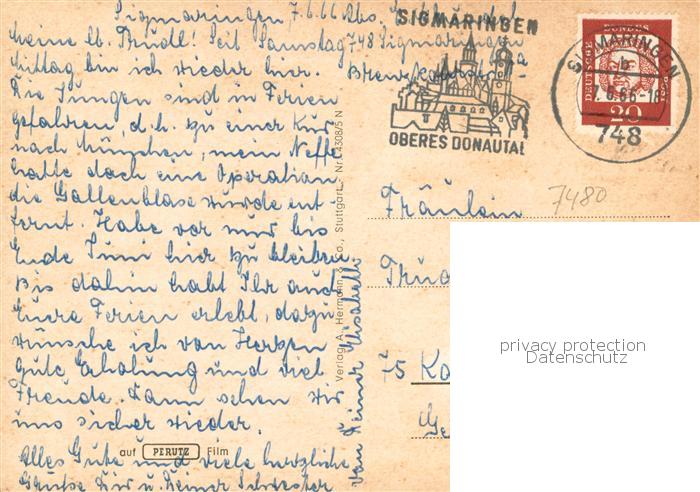 Sigmaringen 7.6.66 Abs.
Meine lb. Trudl! Seit Samstag 748 Sigmaringen
Mittag bin ich wieder hier.
Die Jungen sind in Ferien
gefahren, d.h. zu einer Kur
nach München, mein Neffe
hatte doch eine Operation
die Gallenblase wurde ent-
fernt. Habe vor nur bis
Ende Juni hier zu bleiben
Bis dahin habt Ihr auch
Eure Ferien erlebt, dazu
wünsche ich von Herzen
gute Erholung und viel
Freude. Dann sehen wir
uns sicher wieder.
Alles Gute und viele herzliche
Grüße Dir u. Deiner Schwester
von Deiner Elisabeth
auf PERUTZ Film
Verlag A. Hermann & Co., Stuttgart - Nr. L 4308/5 N
SIGMARINGEN
OBERES DONAUTAL
SIGMARINGEN
b
6.66-18
748
DEUTSCHE BUNDESPOST
20
7480
Fräulein
Trud
75 Ka
privacy protection
Datenschutz